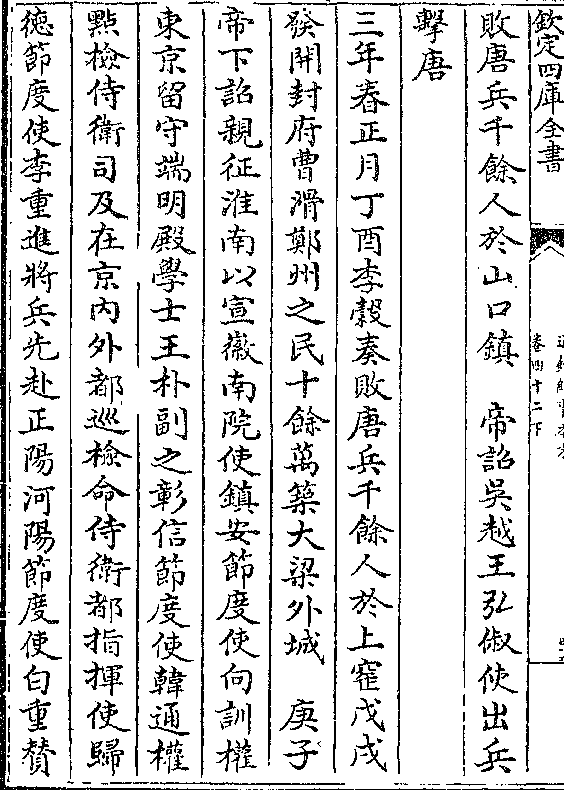 欽定四庫全書
卷四十二下
敗唐兵千餘人於山口鎮　帝詔吳越王弘俶使出兵
擊唐
三年春正月丁酉李穀奏敗唐兵千餘人於上窰戊戌
發開封府曹滑鄭州之民十餘萬築大梁外城　庚子
帝下詔親征淮南以宣徽南院使鎮安節度使向訓權
東京留守端明殿學士王朴副之彰信節度使韓通權
點檢侍衛司及在京內外都巡檢命侍衛都指揮使歸
徳節度使李重進將兵先赴正陽河陽節度使白重賛